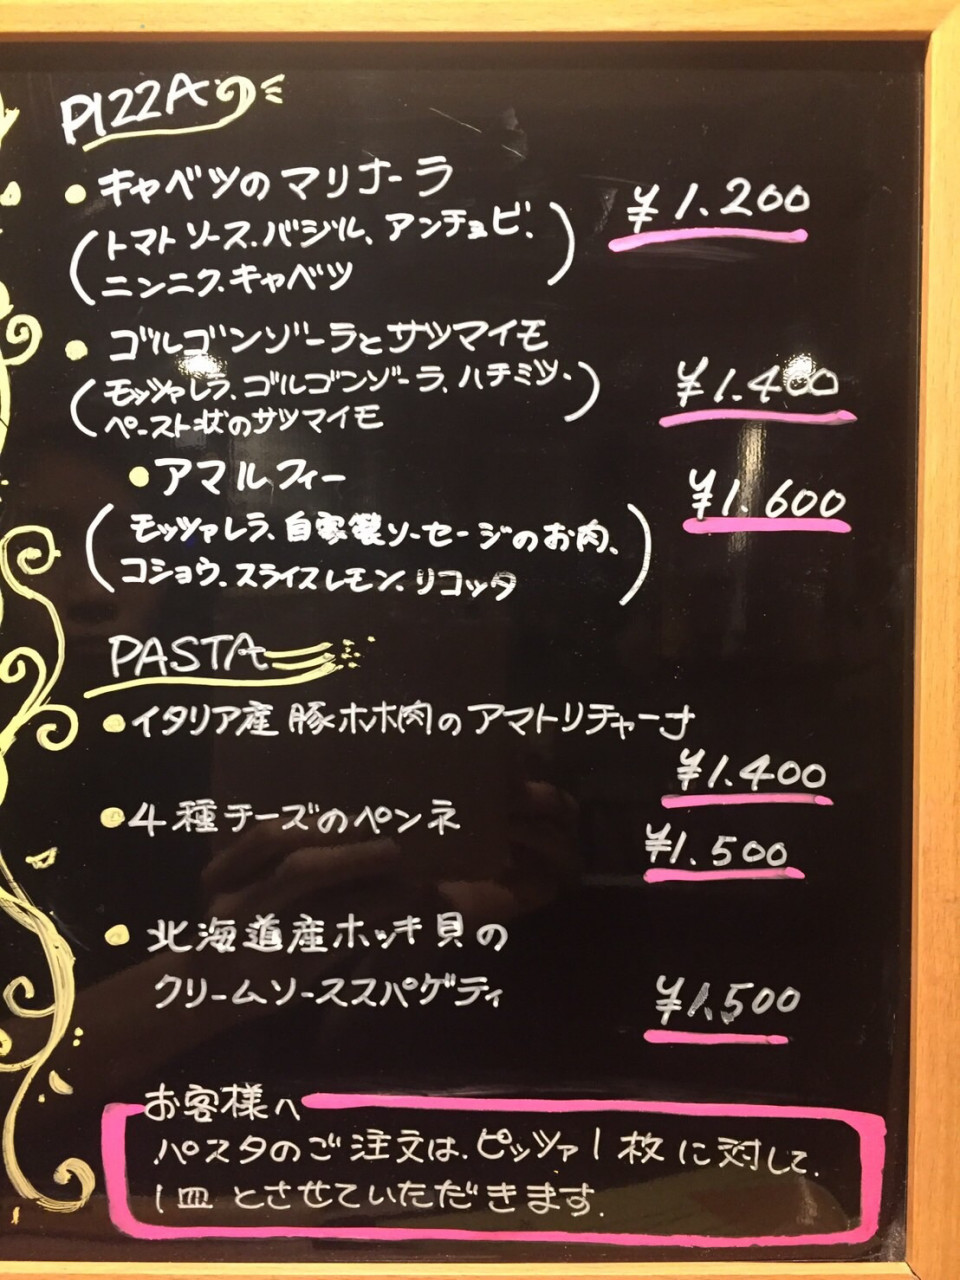 PIZZA
・キャベツのマリナーラ ¥1.200
(トマトソース.バジル、アンチョビ、
ニンニク.キャベツ)
・ゴルゴンゾーラとサツマイモ
(モッツァレラ、ゴルゴンゾーラ、ハチミツ、 ¥1.400
ペースト状のサツマイモ)
・アマルフィー ¥1.600
(モッツァレラ、自家製ソーセージのお肉、
コショウ、スライスレモン、リコッタ)
PASTA
・イタリア産豚ホホ肉のアマトリチャーナ
¥1.400
・4種チーズのペンネ ¥1.500
・北海道産ホッキ貝の
クリームソーススパゲティ ¥1.500
お客様へ
パスタのご注文は、ピッツァ1枚に対して、
1皿とさせていただきます.